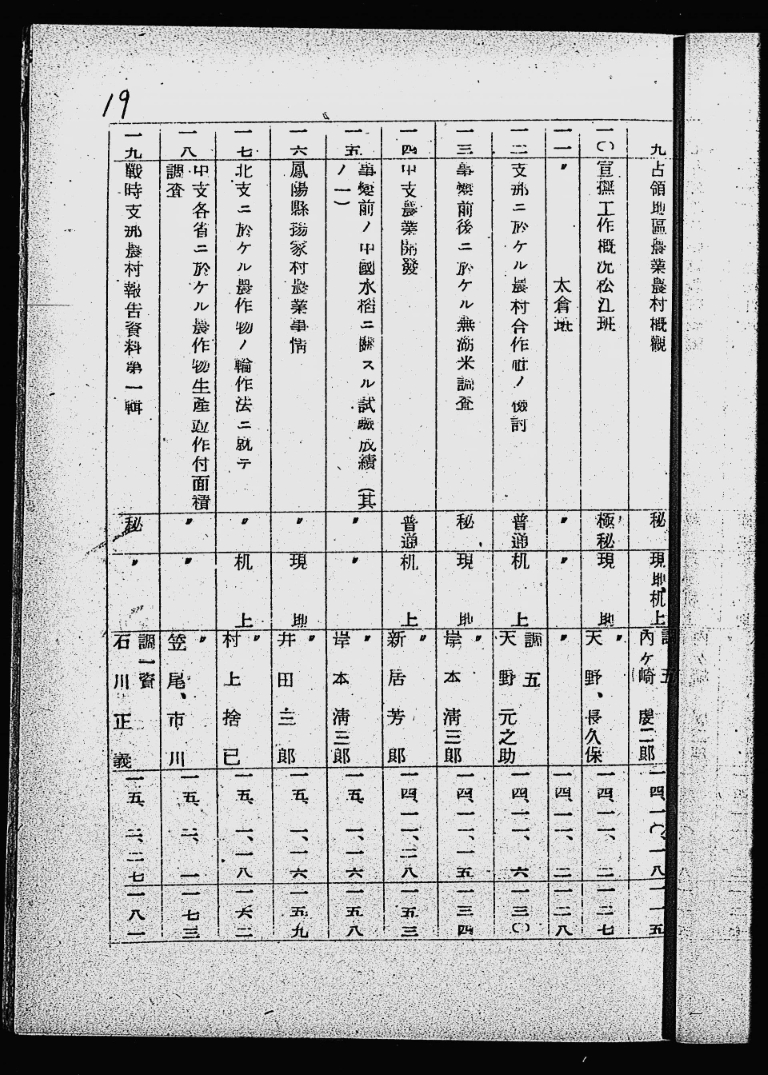 19
九 占領地區農業農村概觀 秘 現地机上 調五 內ケ崎慶二郎 一四、一〇、一八 一一五
一〇 宣撫工作概況松江班 極秘 現地 〃 天野、長久保 一四、一一、二 一二七
一一 〃 太倉班 〃 〃 〃 一四、一一、二 一二八
一二 支那ニ於ケル農村合作社ノ檢討 普通 机上 調五 天野元之助 一四、一一、六 一三〇
一三 事變前後ニ於ケル無湖米調査 秘 現地 〃 岸本淸三郎 一四、一一、一五 一三四
一四 中支農業開發 普通 机上 〃 新居芳郎 一四、一一、二八 一五三
一五 事變前ノ中國水稻ニ關スル試驗成績（其
ノ一） 〃 〃 〃 岸本淸三郎 一五、一、一六 一五八
一六 鳳陽縣 家村農業事情 〃 現地 〃 井田三郎 一五、一、一六 一五九
一七 北支ニ於ケル農作物ノ輪作法ニ就テ 〃 机上 〃 村上捨已 一五、一、一八 一六二
一八 中支各省ニ於ケル農作物生產 作付面積
調査 〃 〃 〃 笠尾、市川 一五、二、一 一七三
一九 戰時支那農村報告資料第一輯 秘 〃 調一資 石川正義 一五、二、二七 一八一